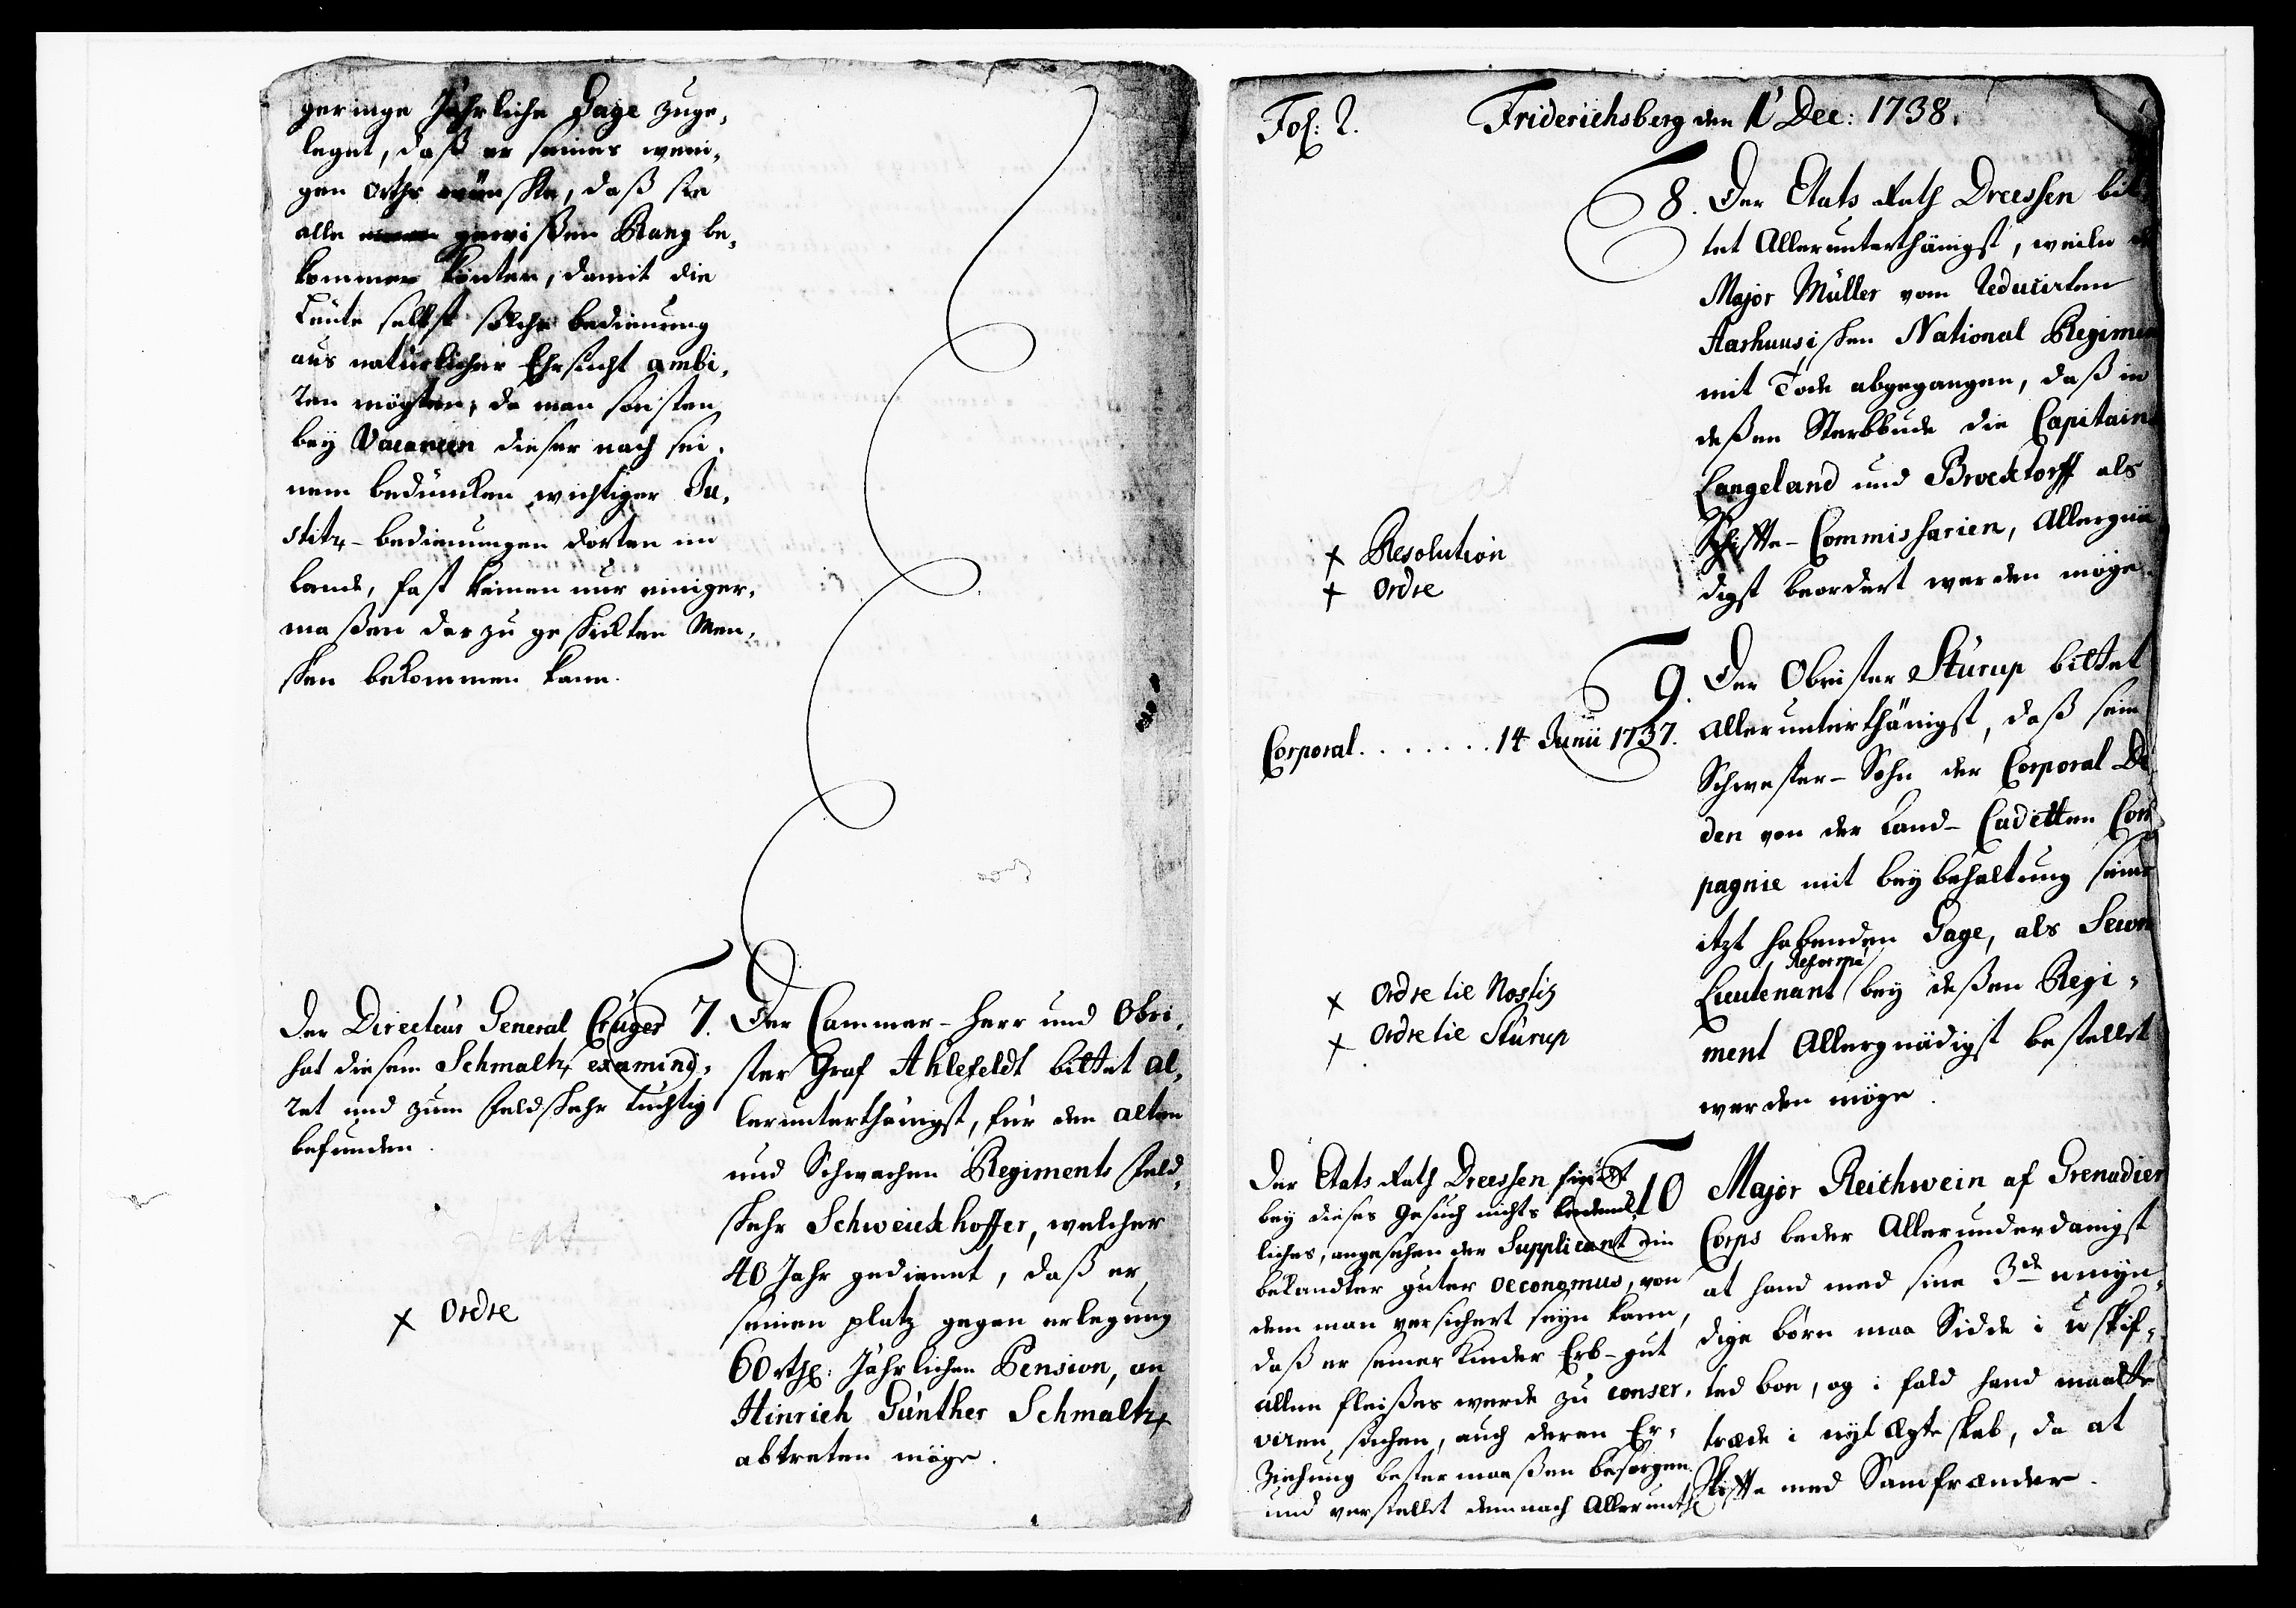 geringe Jährliche Gage zuge-
leget, daß er seines weni-
gen Orths wünschte, daß sie
alle gewißen Rang be-
kommen könten, damit die
Leute selbst solche bedienung
aus natürlicher Ehrsucht ambi-
ren mögten, da man sonsten
bey Vacancen dieser nach sei-
nem bedüncken wichtiger Ju-
stitz-bedienungen dorten im
Lande, fast keinen nur einiger-
maßen darzu geschickten Men-
schen bekommen kann.
Der Directeur General Crüger
hat diesen Schmaltz examini-
ret und zum Feldscher tüchtig
befunden.
x Ordre
7. Der Cammer-Herr und Obri-
ster Graf Ahlefeldt bittet al-
lerunterthänigst, für den alten
und Schwachen Regiments Feld-
scher Schweickhoffer, welcher
40 Jahr gedienet, daß er
seinen platz gegen erlegung
60 rthl: Jährlichen Pension, an
Hinrich Günther Schmaltz
abtreten möge.
Fol: 2.
Friderichsberg den 1' Dec: 1738.
8. Der Etats Rath Dreessen bit-
tet Allerunterthänigst, weiln
Major Müller vom Reducirten
Aarhuusischen National Regimen
mit Tode abgegangen, daß in
deßen Sterbbude die Capitains
Langeland und Brocktorff als
Schiffte-Commissarien, Allergnä
digst beordert werden möge.
x Resolution
x Ordre
9. Der Obrister Stürup bittet
Allerunterthänigst, daß sein
Schwester-Sohn der Corporal
den von der Land-Cadetten Com
pagnie mit beybehaltung seiner
itzt habenden Gage, als Secon
Reformé
Lieutenant bey deßen Regi-
ment Allergnädigst bestellet
werden möge.
Corporal . . . . . . . 14 Junii 1737.
x Ordre tie Nostiz
x Ordre tie Stürup
Der Etats Rath Dreessen findet
bey dieses Gesuch nichts
liches, angesehen der Supplicant ein
bekandter guter oeconomus, von
dem man versichert seyn kann,
daß er seiner Kinder Erb-gut
allen fleißes werde zu conser-
viren suchen, auch deren Er-
ziehung bestermaaßen besorgen.
und verstellet demnach Allerunth
10 Major Reichwein af Grenadier
Corps beder Allerunderdanigst
at hand med sine 3de umyn-
dige börn maa Sidde i uskif-
ted boe, og i fald hand maatte
træde i nyt Ægteskab, da at
skifte med Samfrænder.